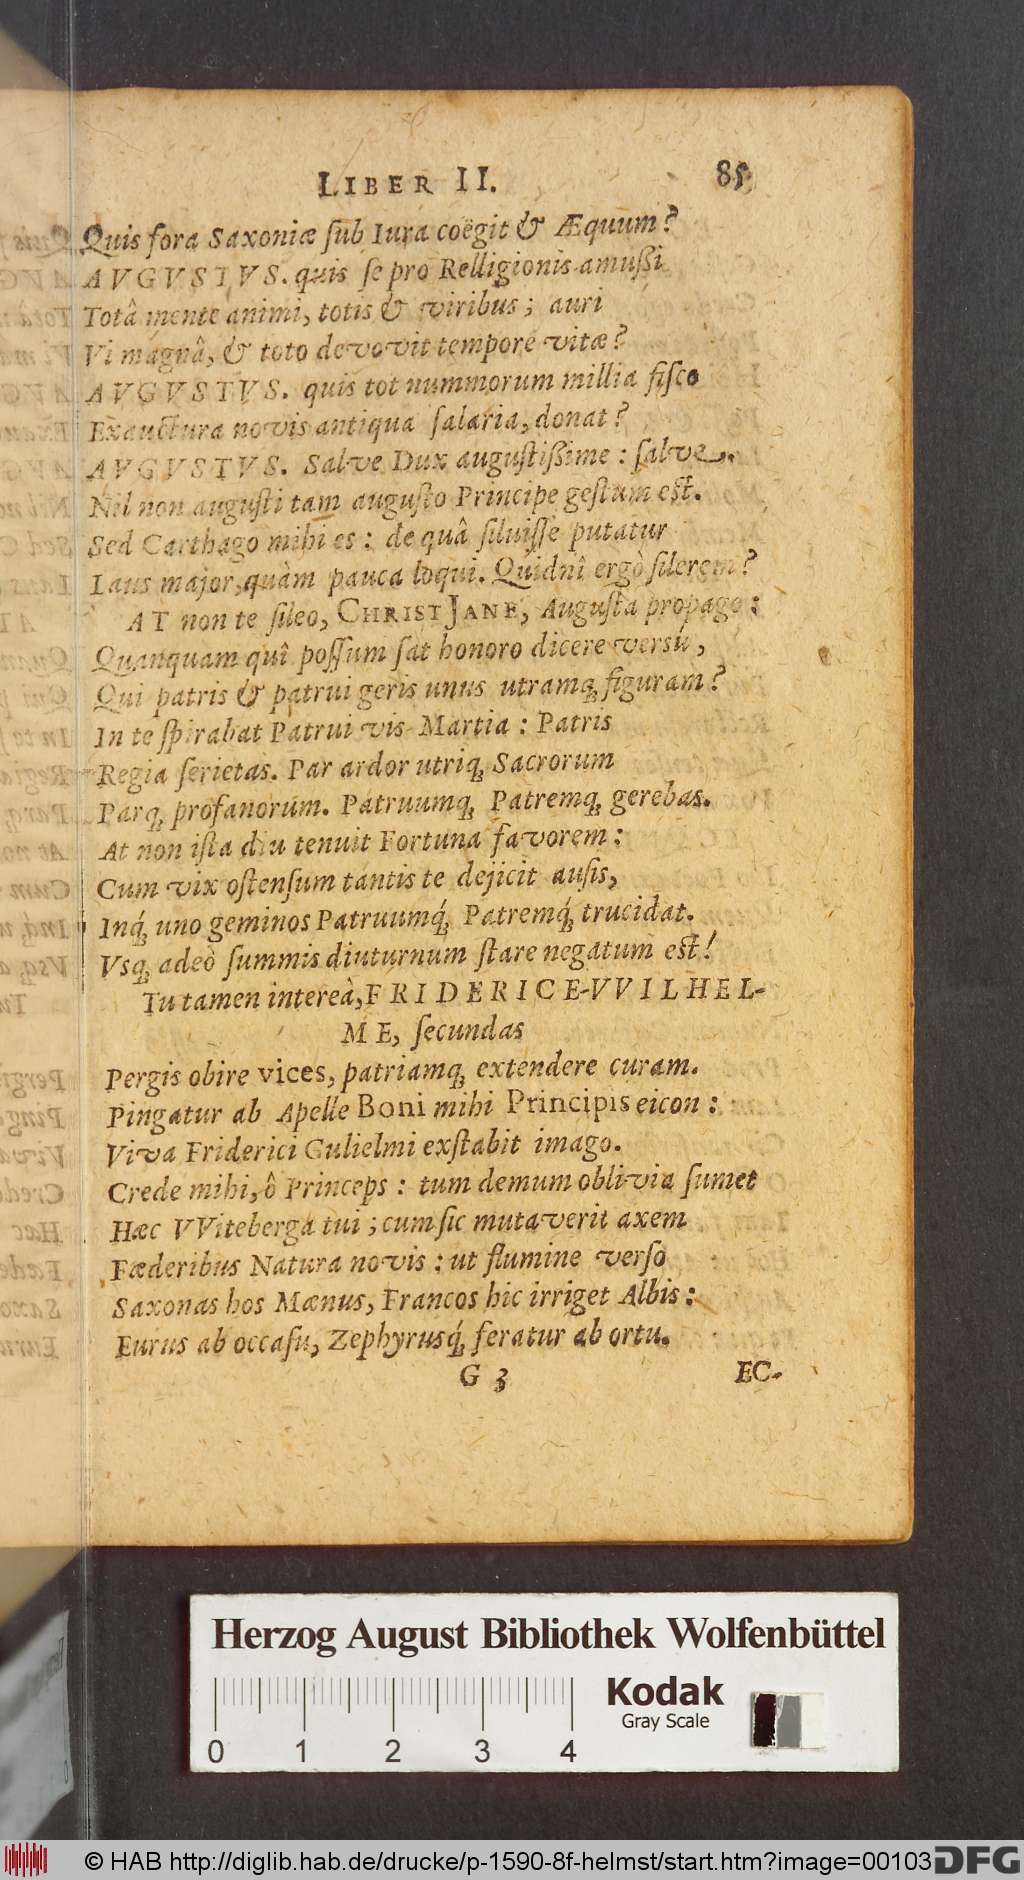 LIBER II. 85
Quis fora Saxoniæ ſub Iura coëgit & Æquum?
AVGVSTVS. quis ſe pro Relligionis amußi
Totâ mente animi, totis & viribus; auri
Vi magnâ, & toto devovit tempore vitæ?
AVGVSTVS. quis tot nummorum millia fiſco
Exauctura novis antiqua ſalaria, donat?
AVGVSTVS. Salve Dux auguſtißime: ſalve.
Nil non auguſti tam auguſto Principe geſtum eſt.
Sed Carthago mihi es: de quâ ſiluiſſe putatur
Laus major, quàm pauca loqui. Quidnî ergò ſilerem?
AT non te ſileo, CHRISTJANE, Auguſta propago:
Quanquam quî poſſum ſat honoro dicere verſu,
Qui patris & patrui geris unus utramq́; figuram?
In te ſpirabat Patrui vis Martia: Patris
Regia ſerietas. Par ardor utriq; Sacrorum
Parq; profanorum. Patruumq; Patremq; gerebas.
At non iſta diu tenuit Fortuna favorem:
Cum vix oſtenſum tantis te dejicit auſis,
Inq́; uno geminos Patruumq́; Patremq́; trucidat.
Vsq; adeò ſummis diuturnum ſtare negatum eſt!
Tu tamen intereà, FRIDERICE-VVILHEL-
ME, ſecundas
Pergis obire vices, patriamq; extendere curam.
Pingatur ab Apelle Boni mihi Principis eicon:
Viva Friderici Gulielmi exſtabit imago.
Crede mihi, ô Princeps: tum demum oblivia ſumet
Hæc VViteberga tui; cum ſic mutaverit axem
Fæderibus Natura novis: ut flumine verſo
Saxonas hos Mœnus, Francos hic irriget Albis:
Eurus ab occaſu, Zephyrusq́; feratur ab ortu.
G 3 EC-
Herzog August Bibliothek Wolfenbüttel
Kodak
Gray Scale
0 1 2 3 4
© HAB http://diglib.hab.de/drucke/p-1590-8f-helmst/start.htm?image=00103
DFG